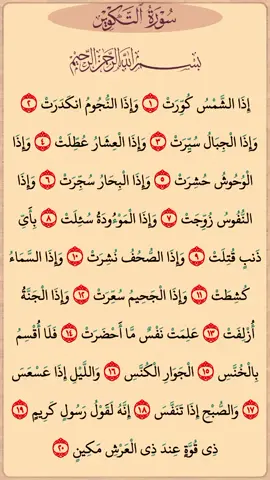 سُورَةُ التَّكْوِيرِ
بِسْمِ اللَّهِ الرَّحْمَٰنِ الرَّحِيمِ
إِذَا الشَّمْسُ كُوِّرَتْ ١ وَإِذَا النُّجُومُ انكَدَرَتْ ٢
وَإِذَا الْجِبَالُ سُيِّرَتْ ٣ وَإِذَا الْعِشَارُ عُطِّلَتْ ٤ وَإِذَا
الْوُحُوشُ حُشِرَتْ ٥ وَإِذَا الْبِحَارُ سُجِّرَتْ ٦ وَإِذَا
النُّفُوسُ زُوِّجَتْ ٧ وَإِذَا الْمَوْءُودَةُ سُئِلَتْ ٨ بِأَيِّ
ذَنبٍ قُتِلَتْ ٩ وَإِذَا الصُّحُفُ نُشِرَتْ ١٠ وَإِذَا السَّمَاءُ
كُشِطَتْ ١١ وَإِذَا الْجَحِيمُ سُعِّرَتْ ١٢ وَإِذَا الْجَنَّةُ
أُزْلِفَتْ ١٣ عَلِمَتْ نَفْسٌ مَّا أَحْضَرَتْ ١٤ فَلَا أُقْسِمُ
بِالْخُنَّسِ ١٥ الْجَوَارِ الْكُنَّسِ ١٦ وَاللَّيْلِ إِذَا عَسْعَسَ
١٧ وَالصُّبْحِ إِذَا تَنَفَّسَ ١٨ إِنَّهُ لَقَوْلُ رَسُولٍ كَرِيمٍ ١٩
ذِى قُوَّةٍ عِندَ ذِى الْعَرْشِ مَكِينٍ ٢٠